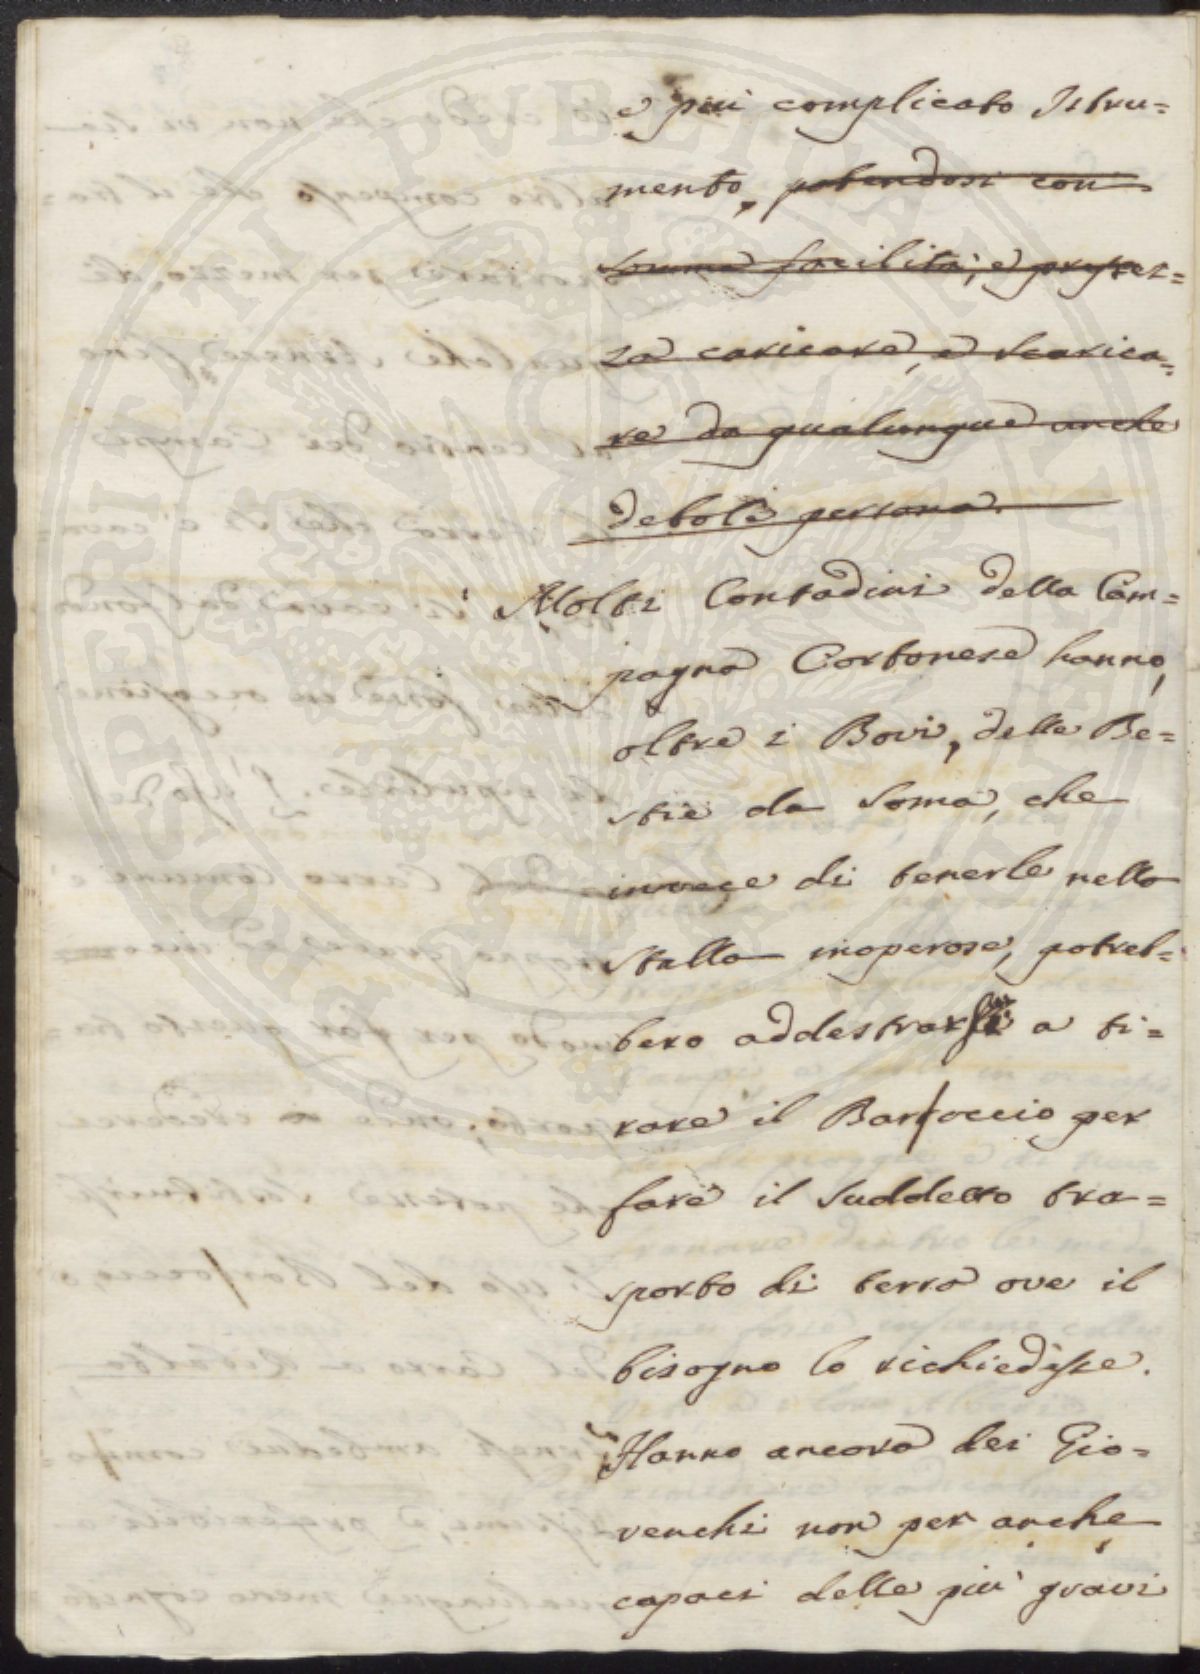 e piu complicato Istru=
mento, potendosi con
somma facilità, e prestez=
za caricare, e scarica=
re da qualunque anche
debole persona.
Molti Contadini della Cam=
pagna Cortonese hanno,
oltre i Bovi, delle Be=
stie da Soma, che
invece di tenerle nella
stalla inoperose, potreb=
bero addestrarsi a ti=
rare il Barroccio per
fare il suddetto tra=
sporto di terra ove il
bisogno lo richiedesse.
Hanno ancora dei Gio=
venchi non per anche
capaci delle più gravi